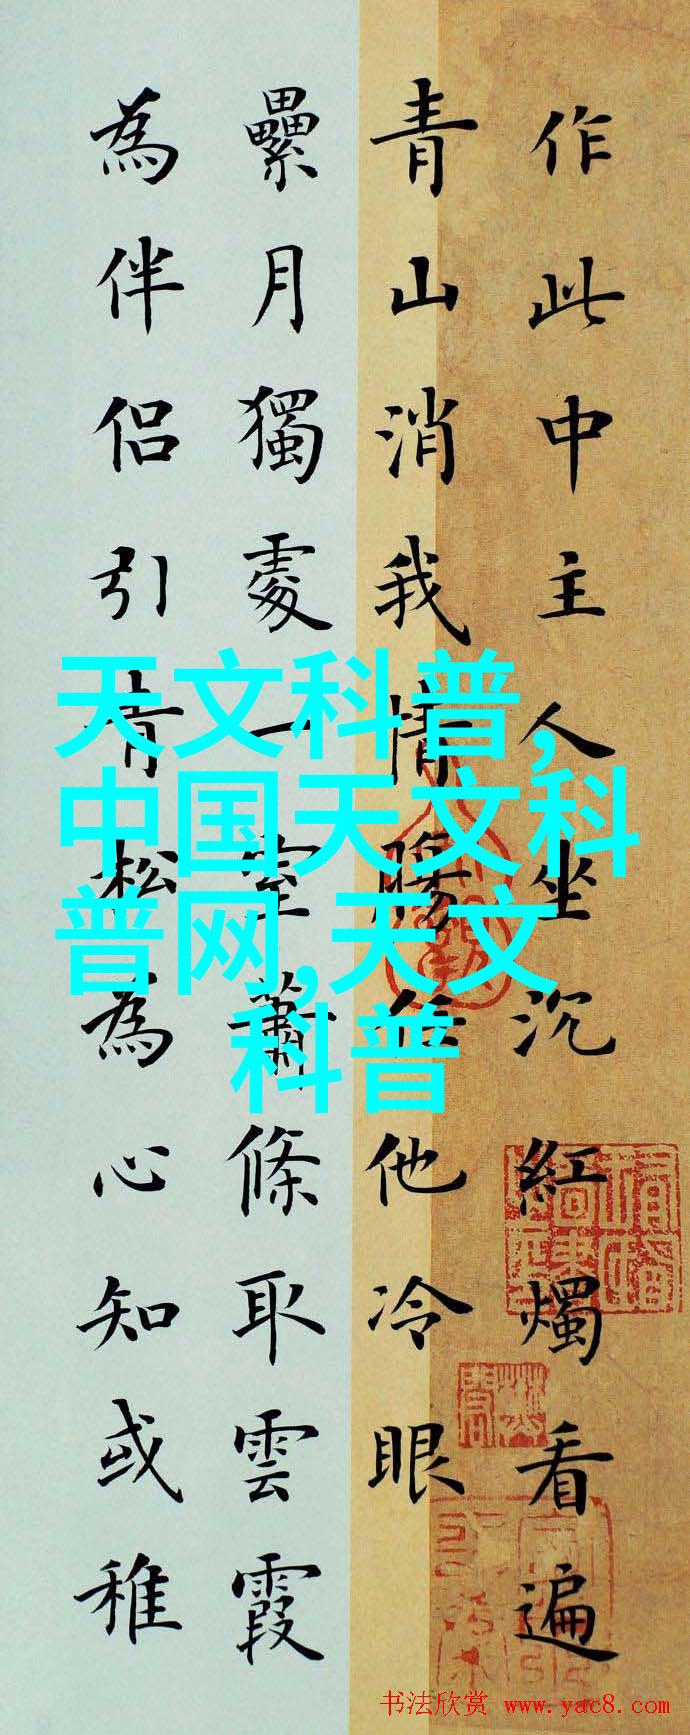 作此中主人坐沉紅燭看遍
青山消我情腸任他冷眼
纍月獨處一室蕭條取雲霞
為伴侣引青松為心知或稚
天文科普,
中国天文科
普网,天文
科普
书法欣赏 www.yac8.com